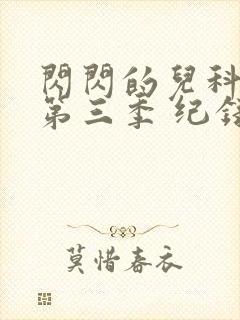 閃閃的兒科
第三季 纪
莫惜春衣